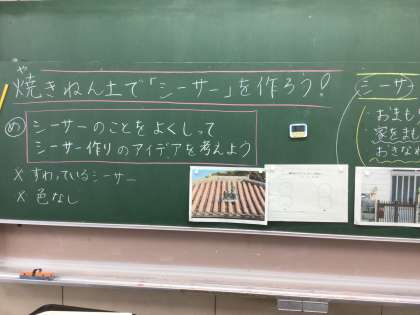 や
焼きねん土で「シーサー」を作ろう!
め
シーサーのことをよくしって
シーサー作りのアイデアを考えよう
× すわっているシーサー
× 色なし
シーサ
おまも
家をまも
おきなわ